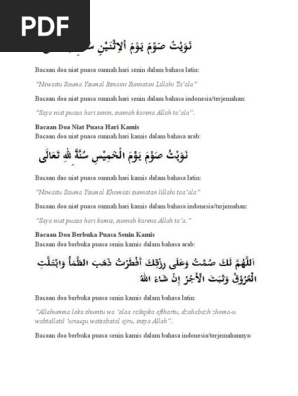 PDF
نَوَيْتُ صَوْمَ يَوْمَ اْلاِثْنَيْنِ
Bacaan doa niat puasa sunnah hari senin dalam bahasa latin:
"Nawaitu Sauma Yaumal Itsnaini Sunnatan Lillahi Ta'ala"
Bacaan doa niat puasa sunnah hari senin dalam bahasa indonesia/terjemahan:
"Saya niat puasa hari senin, sunnah karena Allah ta'ala".
Bacaan Doa Niat Puasa Hari Kamis
Bacaan doa niat puasa sunnah hari kamis dalam bahasa arab:
نَوَيْتُ صَوْمَ يَوْمَ الْخَمِيْسِ سُنَّةً ِللهِ تَعَالَى
Bacaan dao niat puasa sunnah hari kamis dalam bahasa latin:
"Nawaitu Sauma Yaumal Khomiisi sunnatan lillahi taa'ala"
Bacaan doa niat puasa sunnah hari kamis dalam bahasa indonesia/terjemahan:
"Saya niat puasa hari kamis, sunnah karena Allah ta'a.".
Bacaan Doa Berbuka Puasa Senin Kamis
Bacaan doa berbuka puasa senin kamis dalam bahasa arab:
اَللَّهُمَّ لَكَ صُمْتُ وَعَلَى رِزْقِكَ أَفْطَرْتُ ذَهَبَ الظَّمَأُ وَابْتَلَّتِ
الْعُرُوْقُ وَثَبَتَ الْأَجْرُ إِنْ شَاءَ اللهُ
Bacaan doa berbuka puasa senin kamis dalam bahasa latin:
"Allahumma laka shumtu wa 'alaa rizkqika afthortu, dzahabazh zhoma-u
wabtallatil 'uruuqu watsabatal ajru, insya Allah".
Bacaan doa berbuka puasa senin kamis dalam bahasa indonesia/terjemahannya: